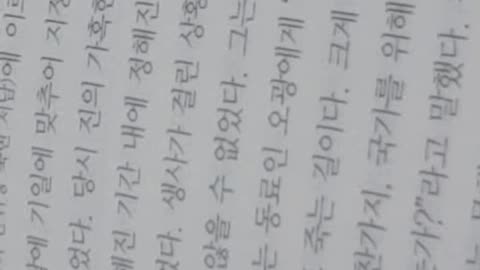 이르
에 기일에 맞추어 지정
었다. 당시 진의 가혹한
해진 기간 내에 정해진
었다. 생사가 걸린 상황
않을 수 없었다. 그는
는 동료인 오광에게
죽는 길이다. 크게
찬가지, 국가를 위해
가?"라고 말했다.